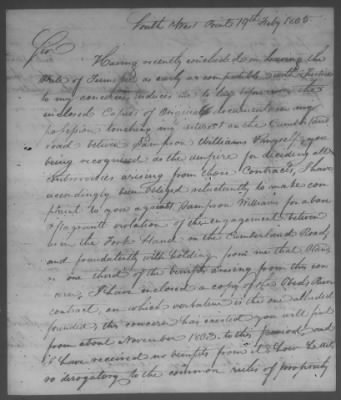 South West Point 19th July 1805
Sir
Having recently concluded on leaving the
State of Tennessee as early as compatible with Justice
to my concerns, induces me to lay before you the
inclosed Copies of Original documents in my
possession touching my interest in the Cumberland
road between Sampson Williams & myself, you
being recognized as the umpire for deciding all
Controversies arising from those Contracts, I have
accordingly been obliged reluctantly to make com
plaint to you against Sampson Williams for a base
& flagrant violation of the engagement between
us in the Stand on the Cumberland Road,
and fraudulently with holding from me
one third of the benefits arising from this con
cern. I have inclosed a copy of the Obeds River
contract, on which verbatim is the one alluded
founded, this concern has existed you will find
from about November 1803 to this period and
I have received no benefits from it
so derogatory to the common rules of propriety